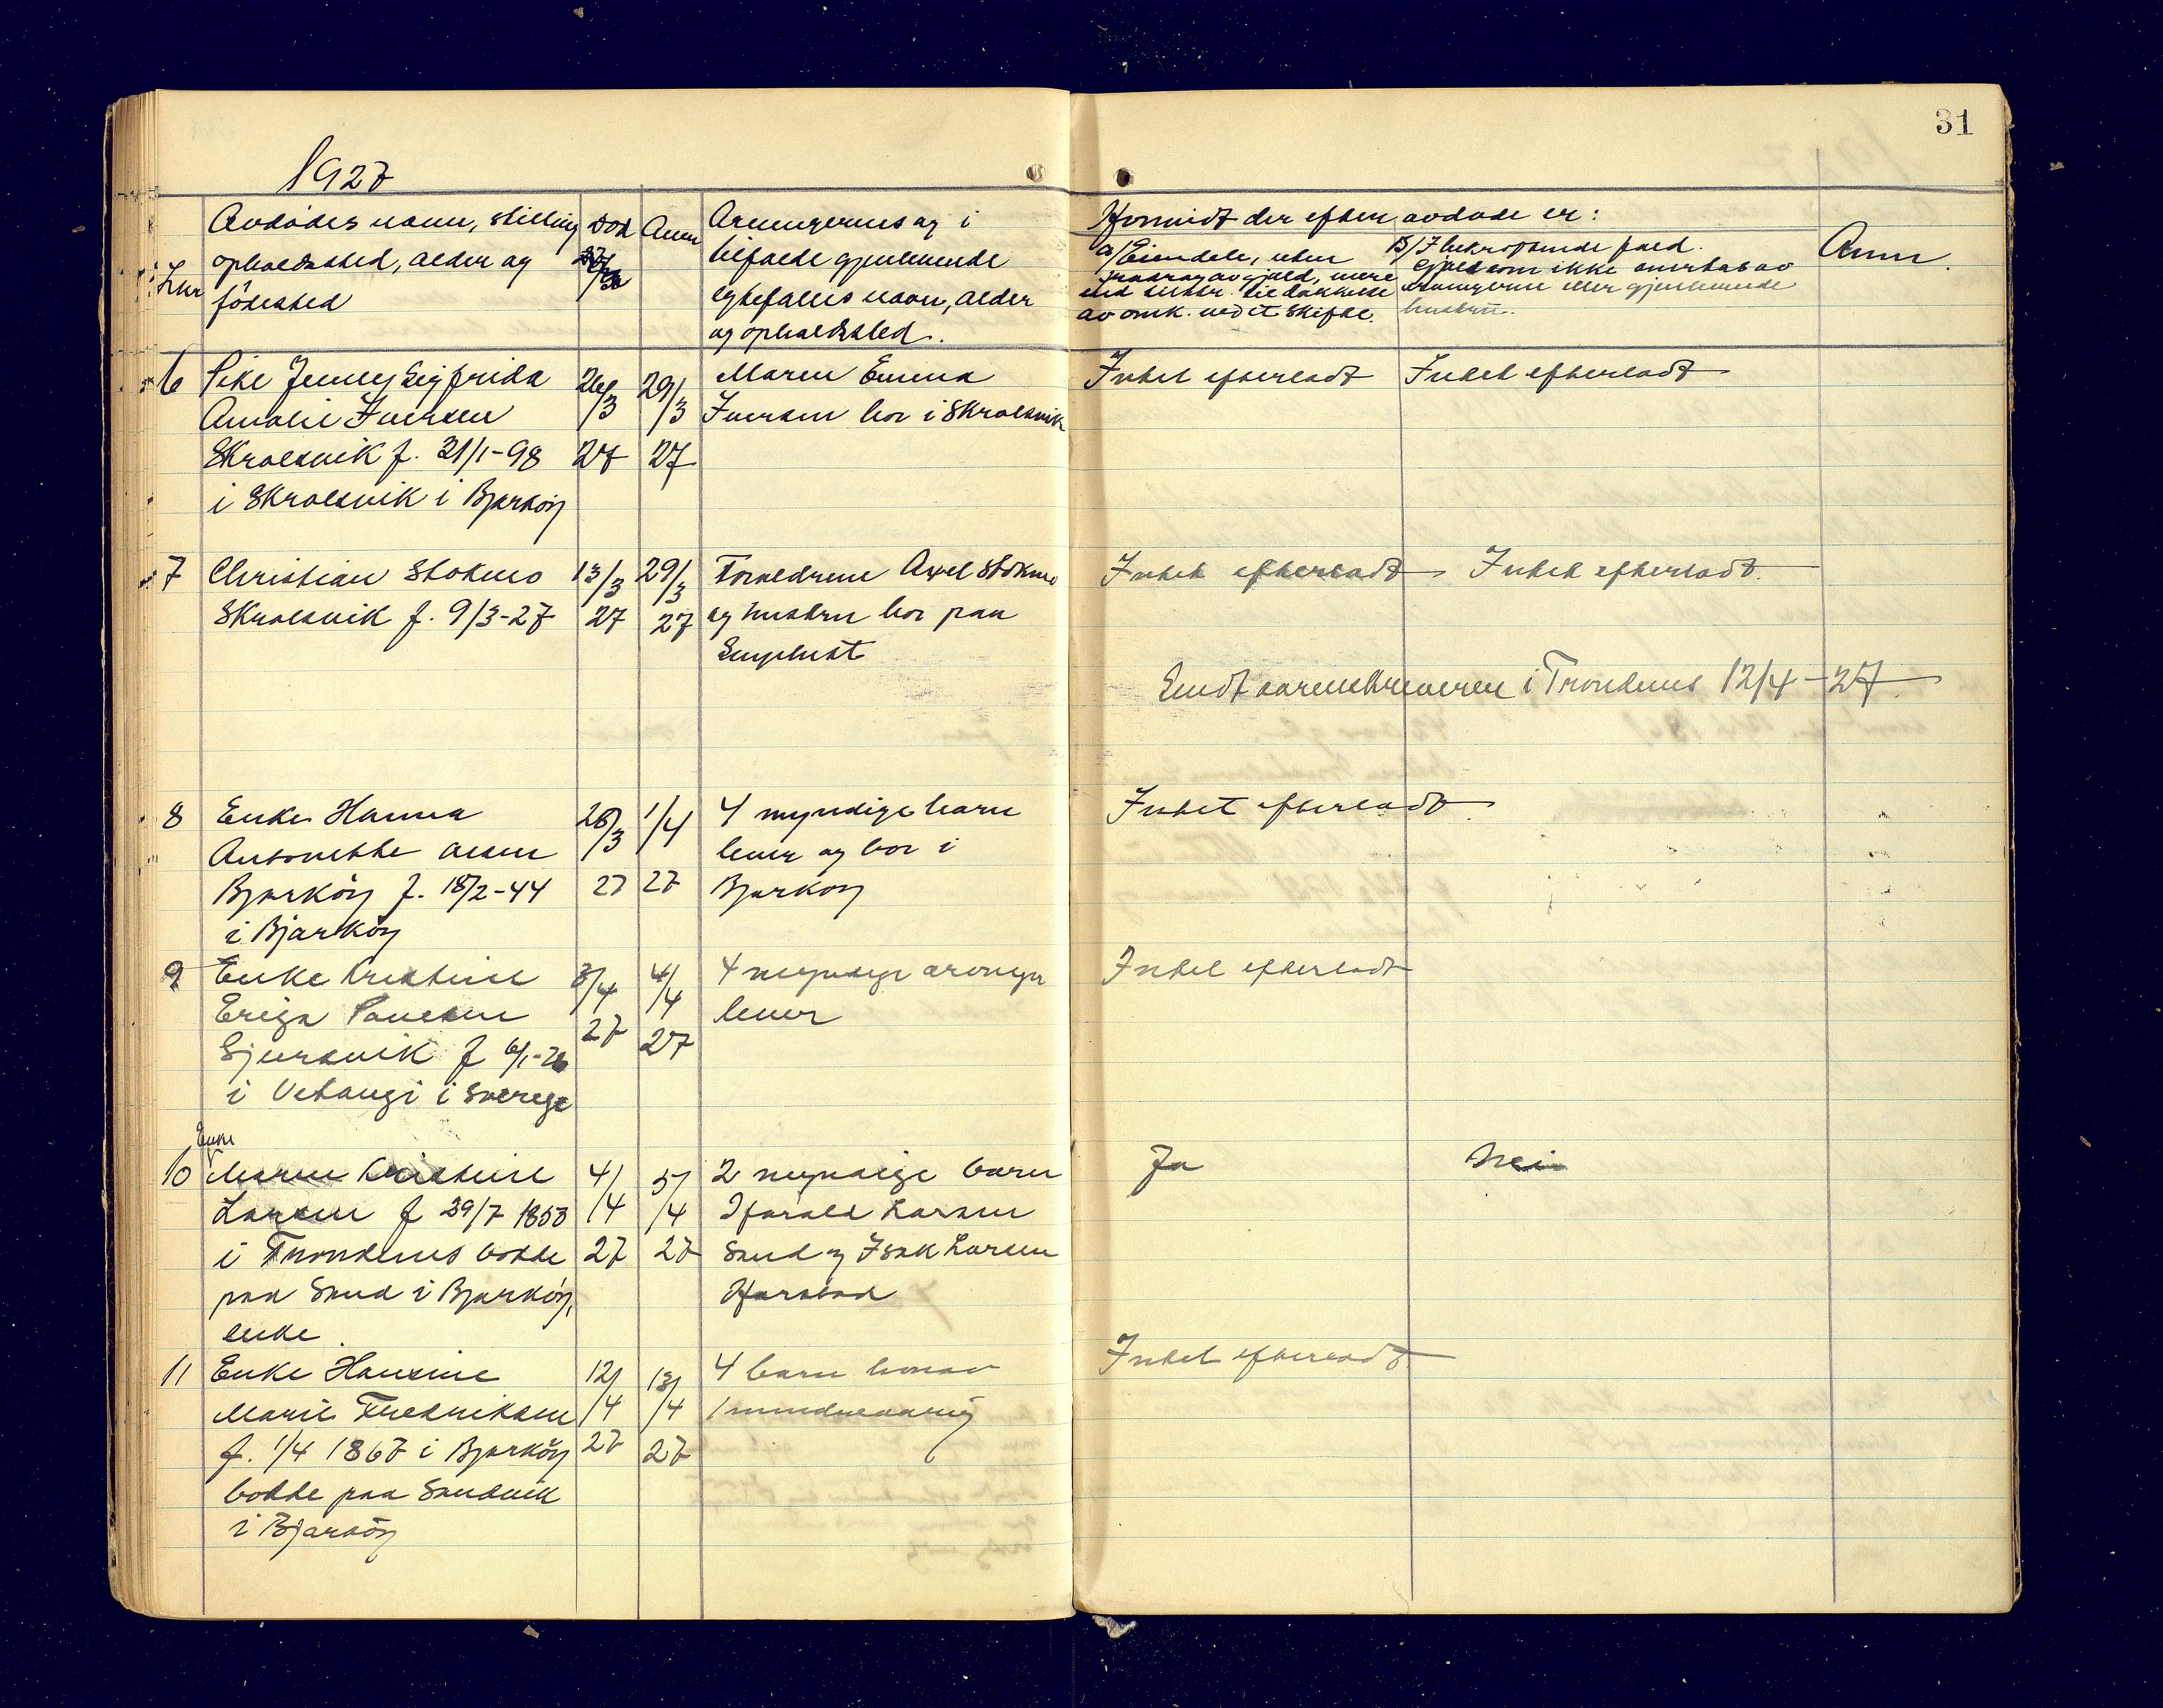 31
1927
Lnr
Avdödes navn, stilling
opholdssted, alder og
födested
Död
Anm
Arvingernes og i
tilfælde gjenlevende
egtefælles navn, alder
og opholdssted.
Hvorvidt der efter avdøde er:
a/ Eiendele, uten
fradrag av gjæld, mere
end tilstr. til dækkelse
av omk. ved et skifte.
B/ I bekræftende fald
gjæld som ikke overtas av
arvingerne eller gjenlevende
hustru.
Anm.
6 Pike Jenny Sigfrida 26/3 29/3 Maren Emma Intet efterladt Intet efterladt
Amalie Iversen Iversen bor i Skrolsvik
Skrolsvik f. 31/1-98 27 27
i Skrolsvik i Bjarköy
7 Christian Stokmo 13/3 29/3 Forældrene Axel Stokmo Intet efterladt Intet efterladt.
Skrolsvik f. 9/3-27 27 27 og hustru bor paa
Sendt sorenskriveren i Trondenes 12/4-27.
8 Enke Hanna 26/3 1/4 4 myndige barn Intet efterladt.
Antonette Olsen lever og bor i
Bjarköy f. 18/2-44 27 27 Bjarköy
i Bjarköy
9 Enke Kristine 3/4 4/4 4 myndige arvinger Intet efterladt
Eriga Paulsen 27 27 lever
f 6/1-26
i Vetangi i Sverege
Enke
10 Maren Kristine 4/4 5/4 2 myndige barn Ja Nei
Larsen f 29/7 1853 Harald Larsen
i Trondenes bodde 27 27 Sand og Isak Larsen
paa Sand i Bjarköy, Harstad
enke.
11 Enke Hansine 12/4 13/4 4 barn hvorav Intet efterladt
Marie Fredriksen 1 mindreaarig
f. 1/4 1867 i Bjarköy 27 27
bodde paa Sandvik
i Bjarköy